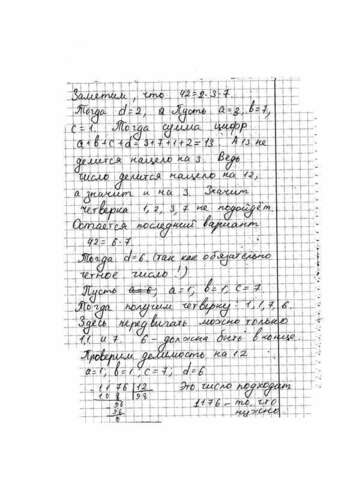 Заметим, что 42=2·3·7
Тогда d=2, а Пусть a=3, b=7,
c=1. Тогда сумма цифр
a+b+c+d=3+7+1+2=13 А 13 не
делится нацело на 3. Ведь
число делится нацело на 12,
а значит и на 3. Значит
четверка 1,2,3,7 не подойдёт.
Остается последний вариант
42=6·7
Тогда d=6 (так как обязательно
четное число!)
Пусть a=6, a=1, b=1, c=7.
Тогда получим четверку: 1,1,7,6.
Здесь передвигать можно только
1,1 и 7. 6 – должна быть в конце.
Проверим делимость на 12
a=1, b=1, c=7; d=6
1176 12 Это число подходит
108 98 1176 – то, что
96 нужно
96
0